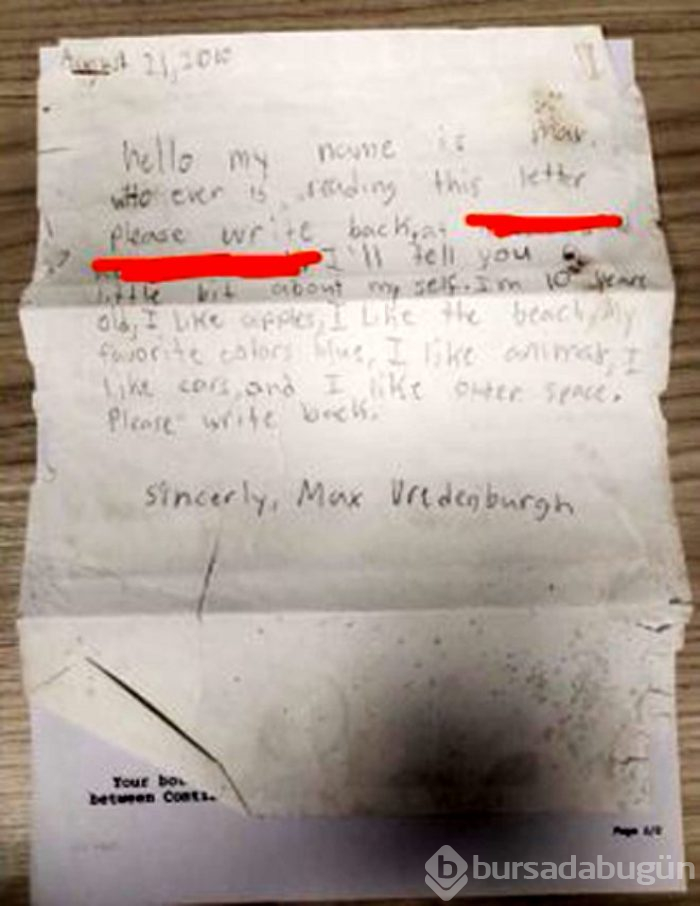 August 21, 2010
hello my name is Max.
who ever is reading this letter
please write back, at
I'll tell you a
little bit about my self. I'm 10 years
old, I like apples, I like the beach, My
favorite colors blue, I like animals, I
like cars, and I like outer space.
Please write back.
sincerly, Max Vredenburgh
Your bo
between Conti
Page 2/2
bursadabugün